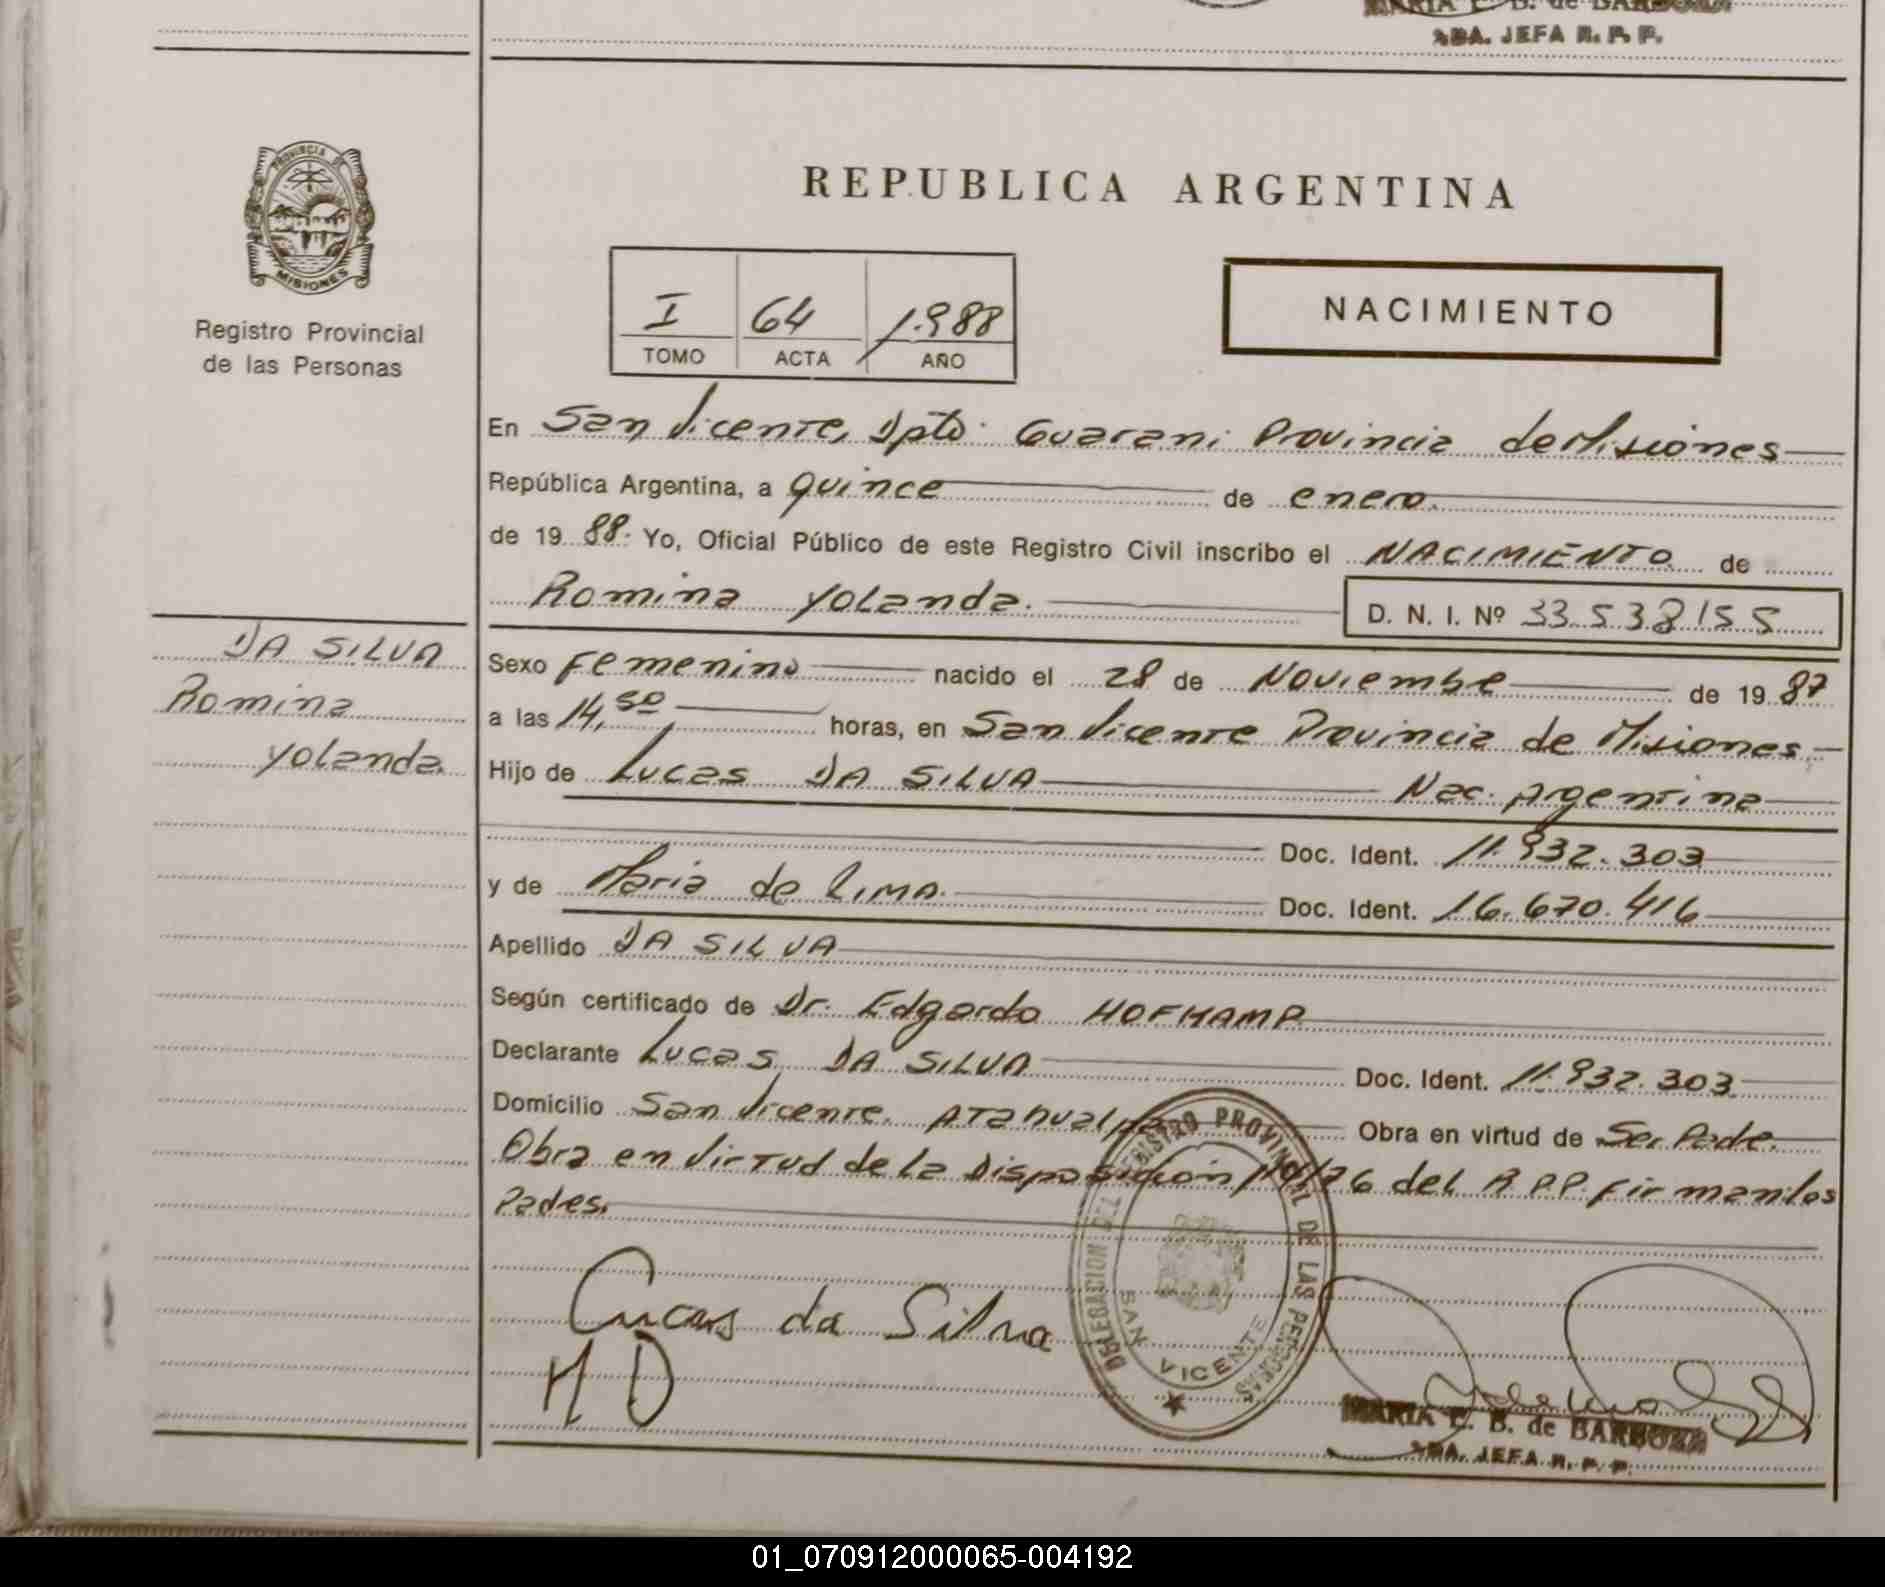 MARIA E. B. de BARBOZA
2DA. JEFA R. P. P.
PROVINCIA DE
MISIONES
Registro Provincial
de las Personas
REPUBLICA ARGENTINA
I 64 1.988
TOMO ACTA AÑO
NACIMIENTO
En San Vicente, Dpto. Guarani Provincia de Misiones
República Argentina, a quince de enero.
de 19 88. Yo, Oficial Público de este Registro Civil inscribo el NACIMIENTO de
Romina Yolanda.
D. N. I. Nº 33.538155
DA SILVA
Romina
Yolanda.
Sexo Femenino nacido el 28 de Noviembre de 19 87
a las 14,50 horas, en San Vicente Provincia de Misiones.
Hijo de Lucas DA SILVA Nac. Argentina
Doc. Ident. 11.932.303
y de Maria de LIMA. Doc. Ident. 16.670.416
Apellido DA SILVA
Según certificado de Dr. Edgardo HOFKAMP
Declarante Lucas DA SILVA Doc. Ident. 11.932.303
Domicilio San Vicente. Atahualpa Obra en virtud de Ser Padre.
Obra en Virtud de la Disposición /76 del R.P.P. firman los
Padres.
Lucas da Silva
M D
DELEGACION DEL REGISTRO PROVINCIAL DE LAS PERSONAS
SAN VICENTE
MARIA E. B. de BARBOZA
2DA. JEFA R. P. P.
01_070912000065-004192